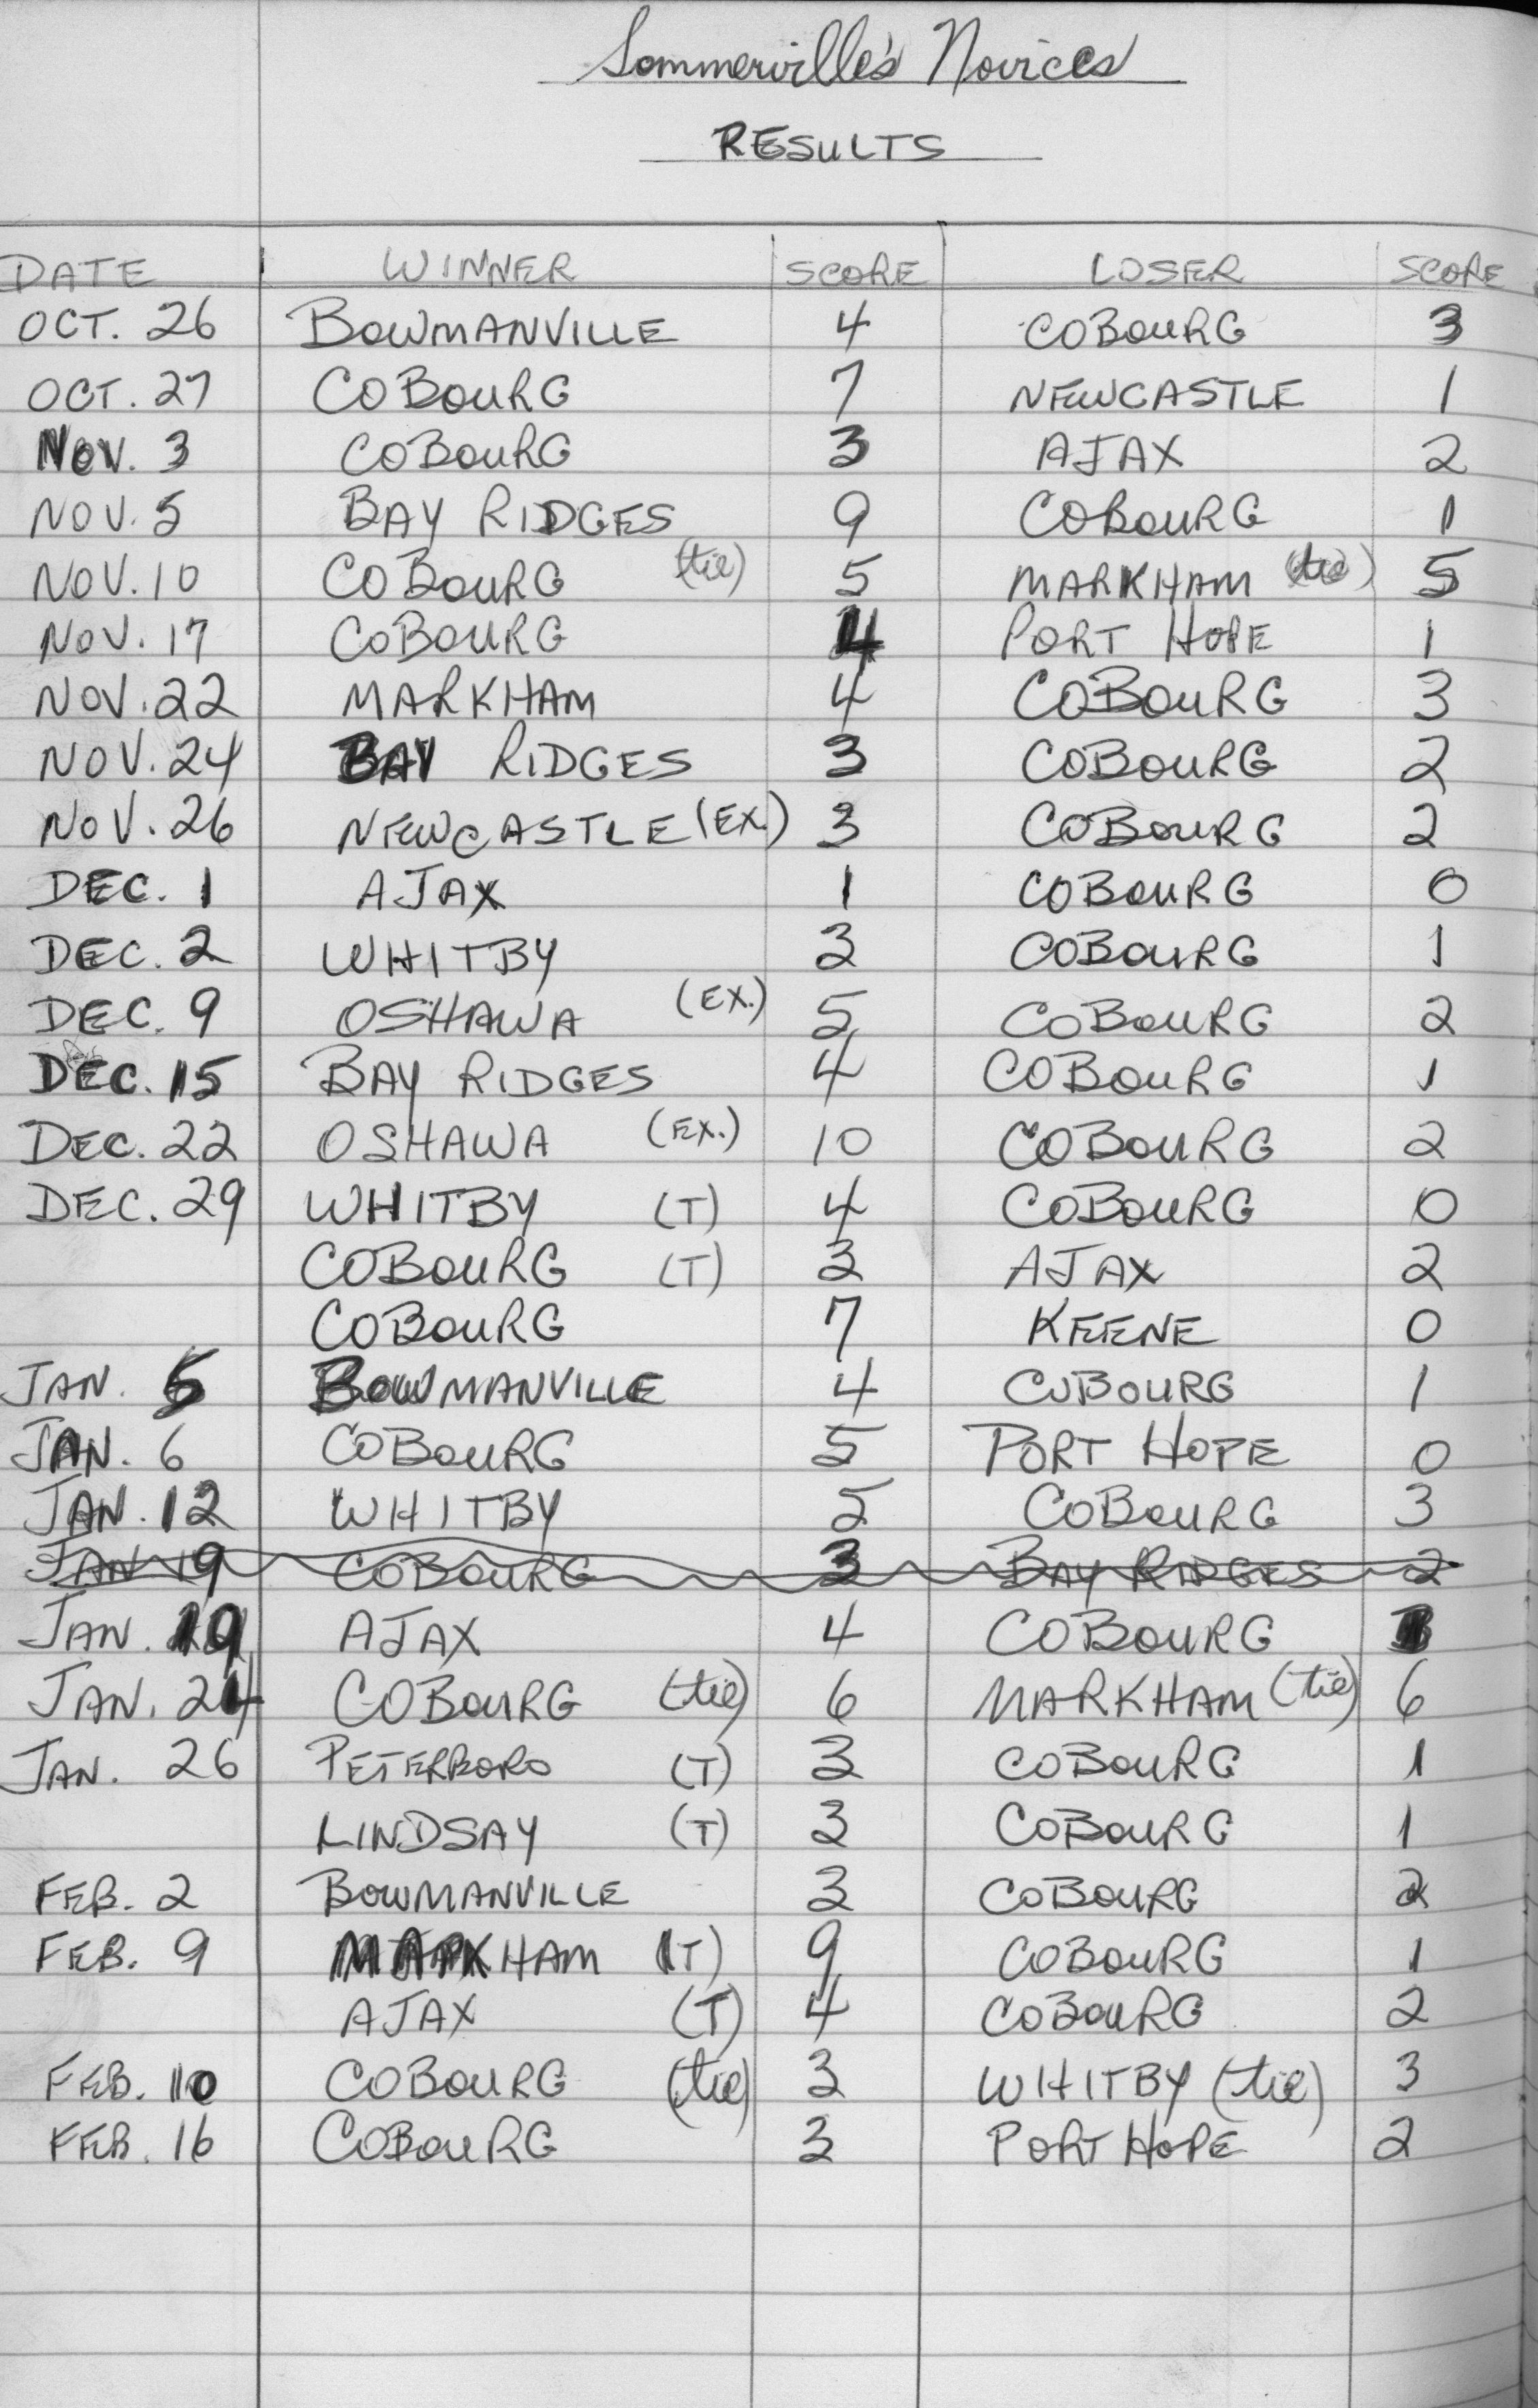 Sommerville's Novices
RESULTS
DATE WINNER SCORE LOSER SCORE
OCT. 26 BOWMANVILLE 4 COBOURG 3
OCT. 27 COBOURG 7 NEWCASTLE 1
NOV. 3 COBOURG 3 AJAX 2
NOV. 5 BAY RIDGES 9 COBOURG 1
NOV. 10 COBOURG (tie) 5 MARKHAM (tie) 5
NOV. 17 COBOURG 4 PORT HOPE 1
NOV. 22 MARKHAM 4 COBOURG 3
NOV. 24 BAY RIDGES 3 COBOURG 2
NOV. 26 NEWCASTLE (EX.) 3 COBOURG 2
DEC. 1 AJAX 1 COBOURG 0
DEC. 2 WHITBY 3 COBOURG 1
DEC. 9 OSHAWA (EX.) 5 COBOURG 2
DEC. 15 BAY RIDGES 4 COBOURG 1
DEC. 22 OSHAWA (EX.) 10 COBOURG 2
DEC. 29 WHITBY (T) 4 COBOURG 0
COBOURG (T) 3 AJAX 2
COBOURG 7 KEENE 0
JAN. 5 BOWMANVILLE 4 COBOURG 1
JAN. 6 COBOURG 5 PORT HOPE 0
JAN. 12 WHITBY 5 COBOURG 3
JAN 19 COBOURG 3 BAY RIDGES 2
JAN. 19 AJAX 4 COBOURG
JAN. 24 COBOURG (tie) 6 MARKHAM (tie) 6
JAN. 26 PETERBORO (T) 3 COBOURG 1
LINDSAY (T) 3 COBOURG 1
FEB. 2 BOWMANVILLE 3 COBOURG 2
FEB. 9 MARKHAM (T) 9 COBOURG 1
AJAX (T) 4 COBOURG 2
FEB. 10 COBOURG (tie) 3 WHITBY (tie) 3
FEB. 16 COBOURG 3 PORT HOPE 2